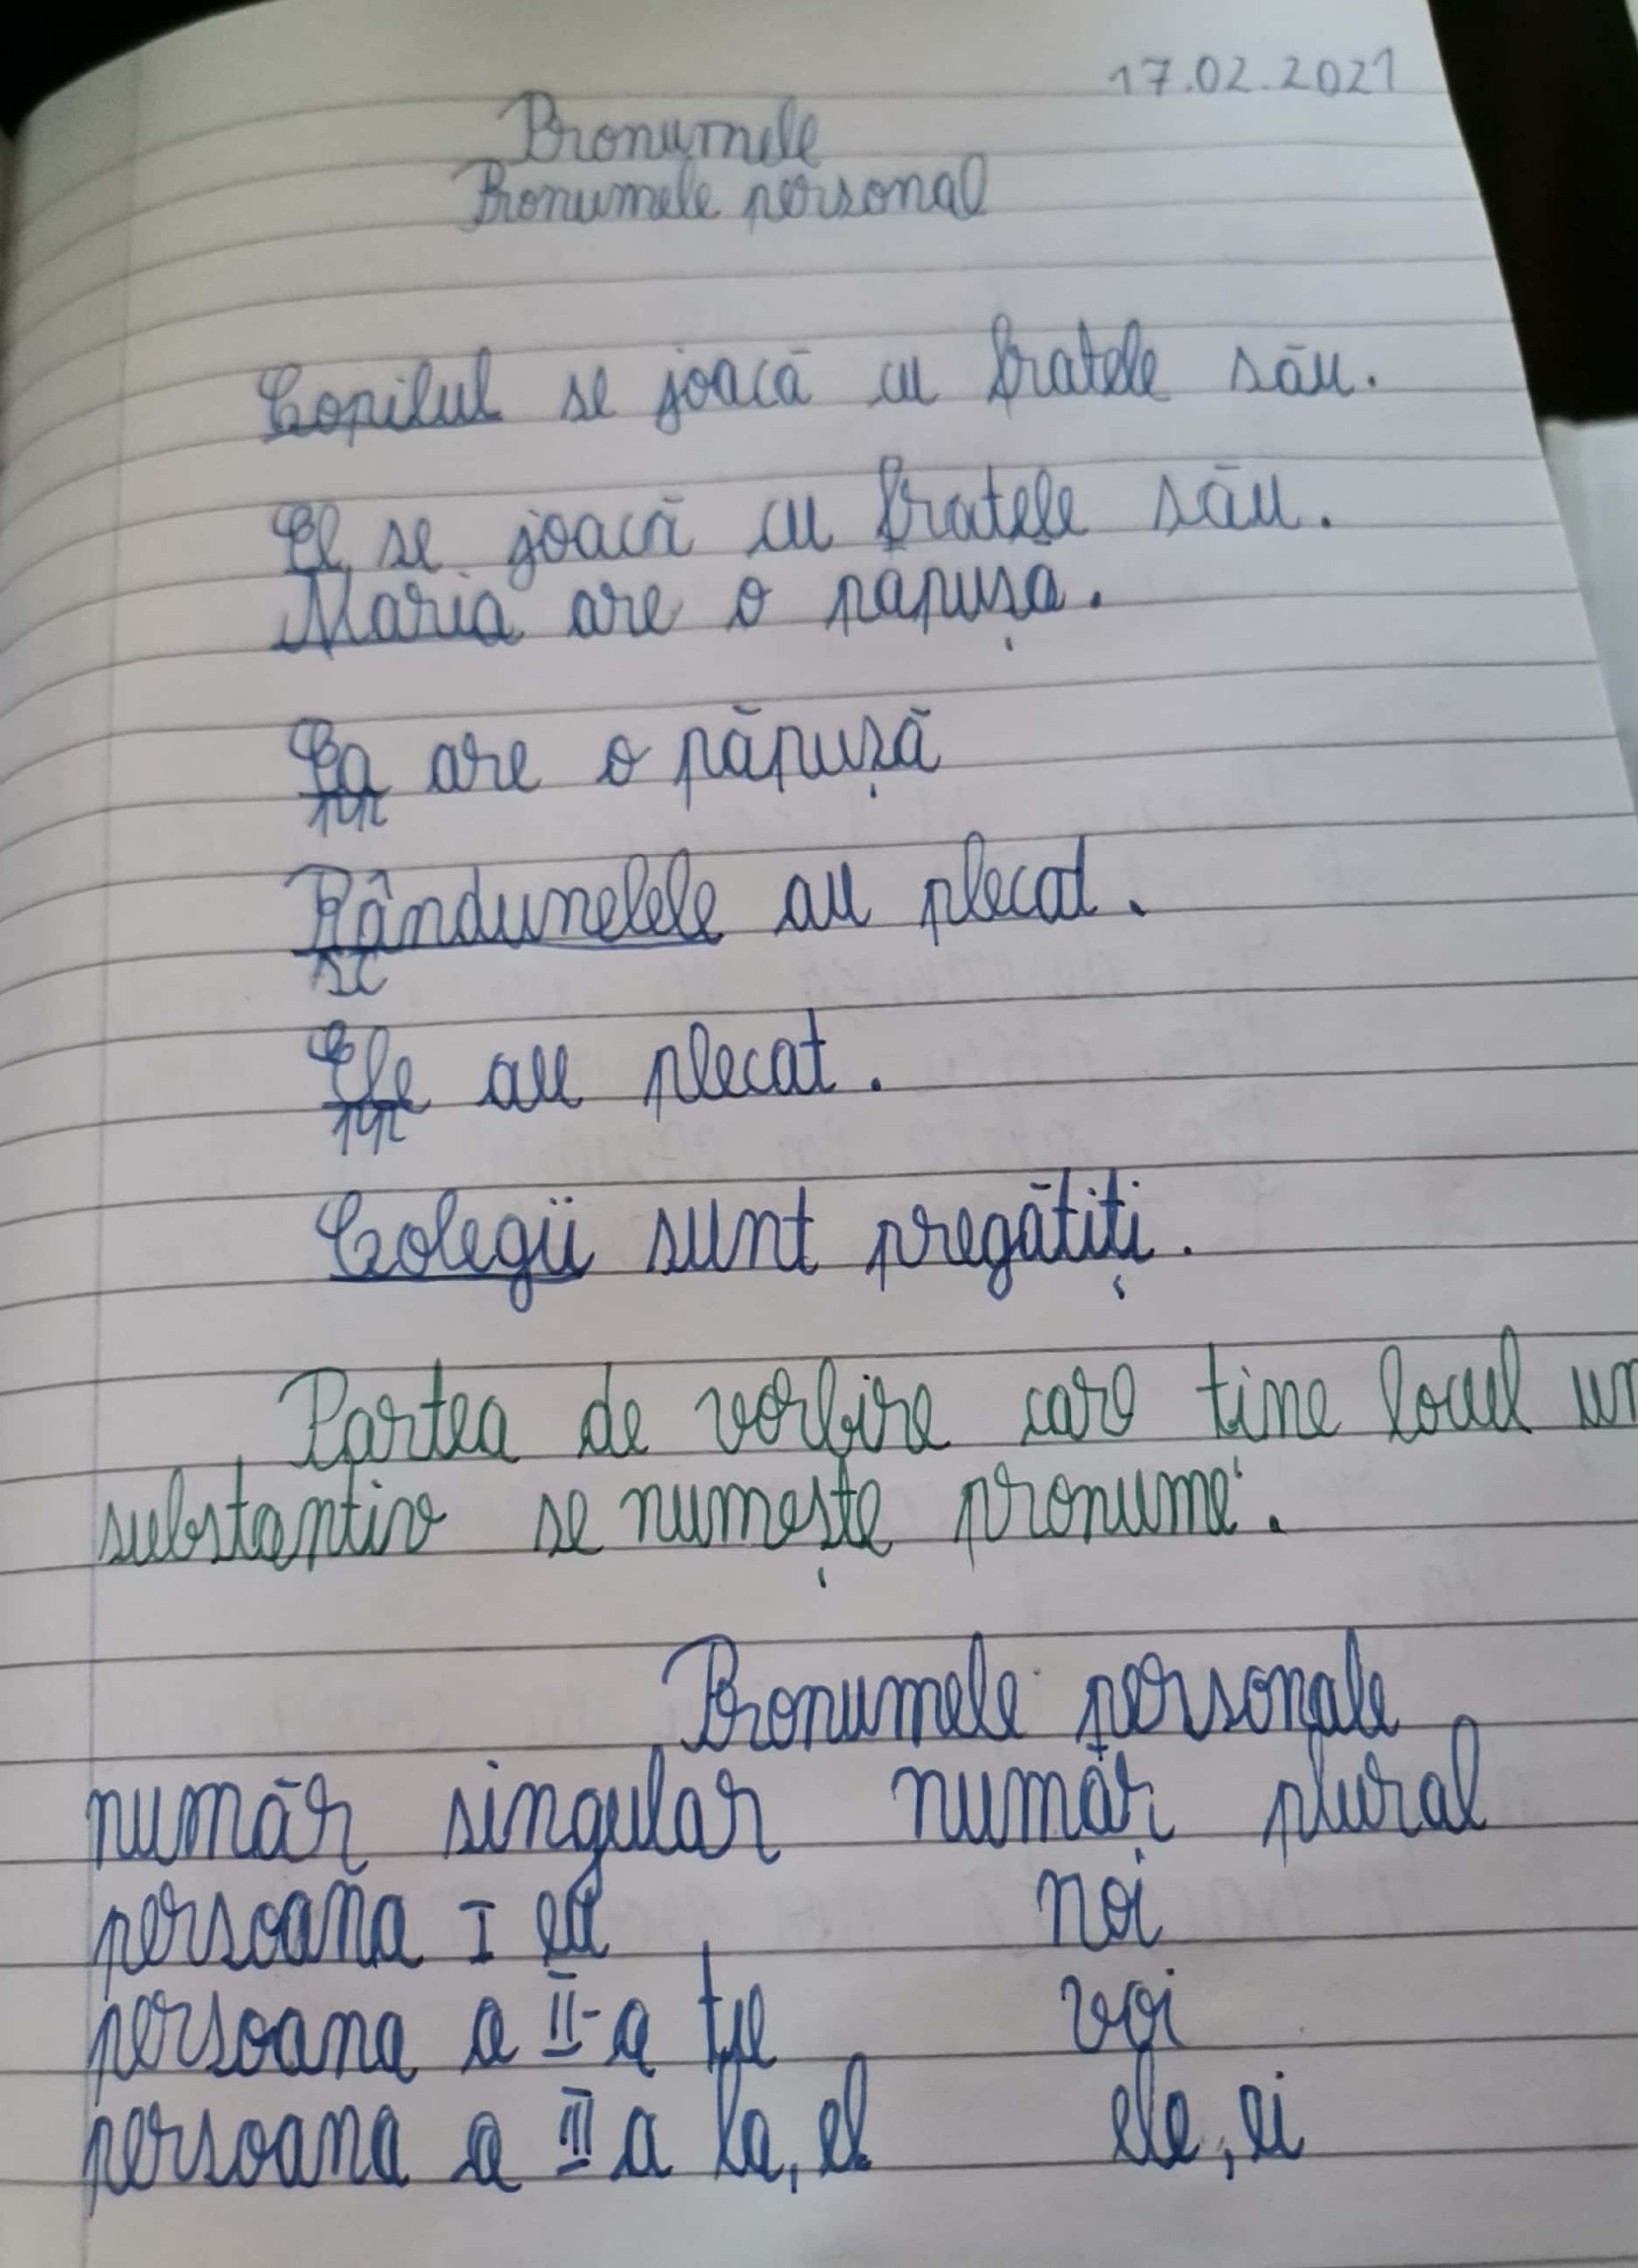 17.02.2021
Pronumele
Pronumele personal
Copilul se joacă cu fratele său.
El se joacă cu fratele său.
Maria are o păpușa.
Ea are o păpușă
Rândunelele au plecat.
Ele au plecat.
Colegii sunt pregătiți.
Partea de vorbire care tine locul
substantiv se numește pronume.
Pronumele personale
număr singular număr plural
persoana I eu noi
persoana a II-a tu voi
persoana a III a Ea, el ele, ei